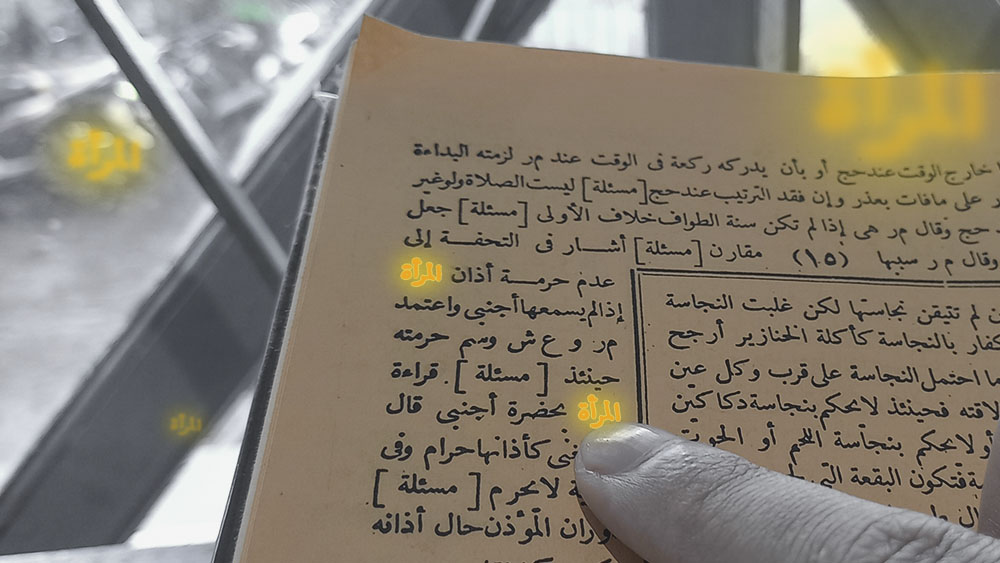 خارج الوقت عند حج أو بأن يدركه ركعة فى الوقت عند م ر لزمته البداءة
على مافات بعذر وإن فقد الترتيب عند حج [مسئلة] ليست الصلاة ولو غير
حج وقال م ر هى إذا لم تكن سنة الطواف خلاف الأولى [مسئلة] جعل
وقال م ر سببها (١٥) مقارن [مسئلة] أشار فى التحفة إلى
عدم حرمة أذان المرأة
إذا لم يسمعها أجنبي واعتمد
م ر و ع ش وسم حرمته
حينئذ [مسئلة]. قراءة
المرأة بحضرة أجنبي قال
كأذانها حرام وفى
لا يحرم [مسئلة]
المؤذن حال أذانه
لم تتيقن نجاستها لكن غلبت النجاسة
بالنجاسة كأكلة الخنازير أرجح
احتمل النجاسة على قرب وكل عين
فحينئذ لا يحكم بنجاسة ذكاكين
أو لا يحكم بنجاسة اللحم أو
فتكون البقعة التى
المرأة
المرأة
المرأة